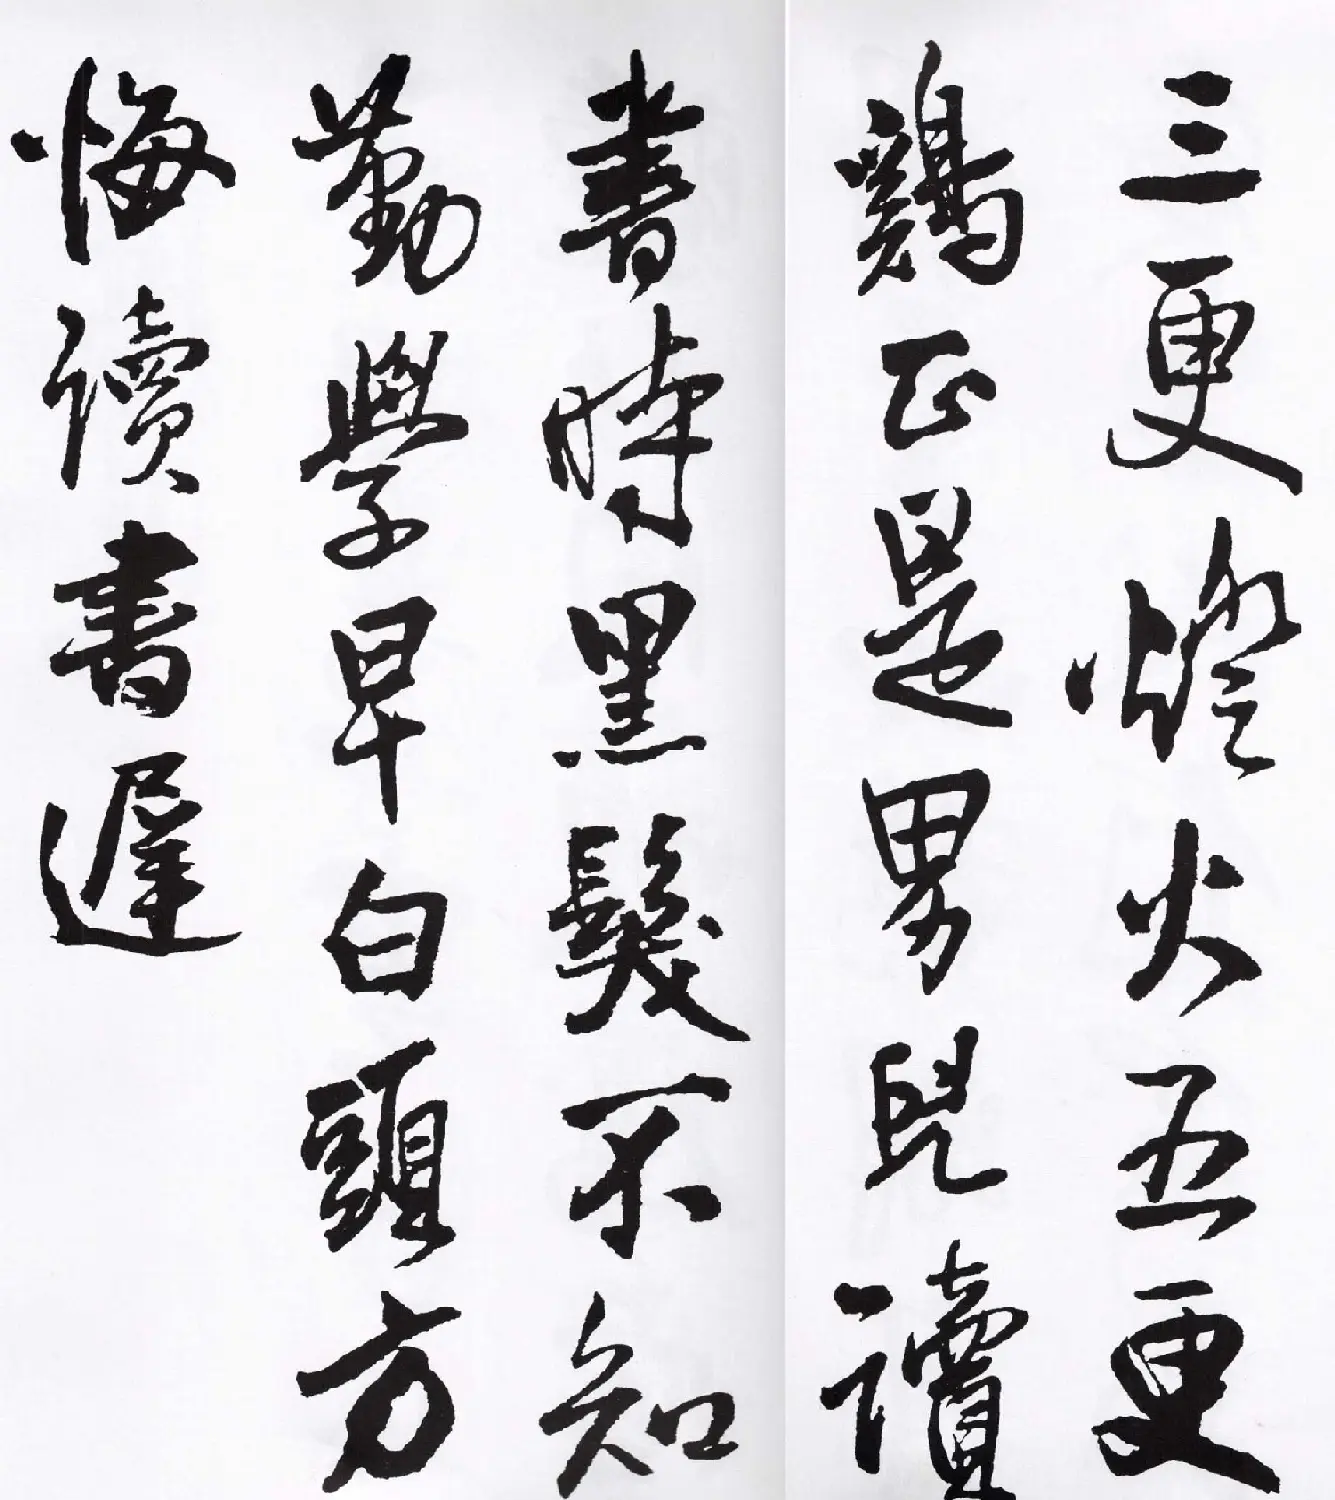 三更燈火五更
鷄正是男兒讀
書時黑髮不知
勤學早白頭方
悔讀書遲